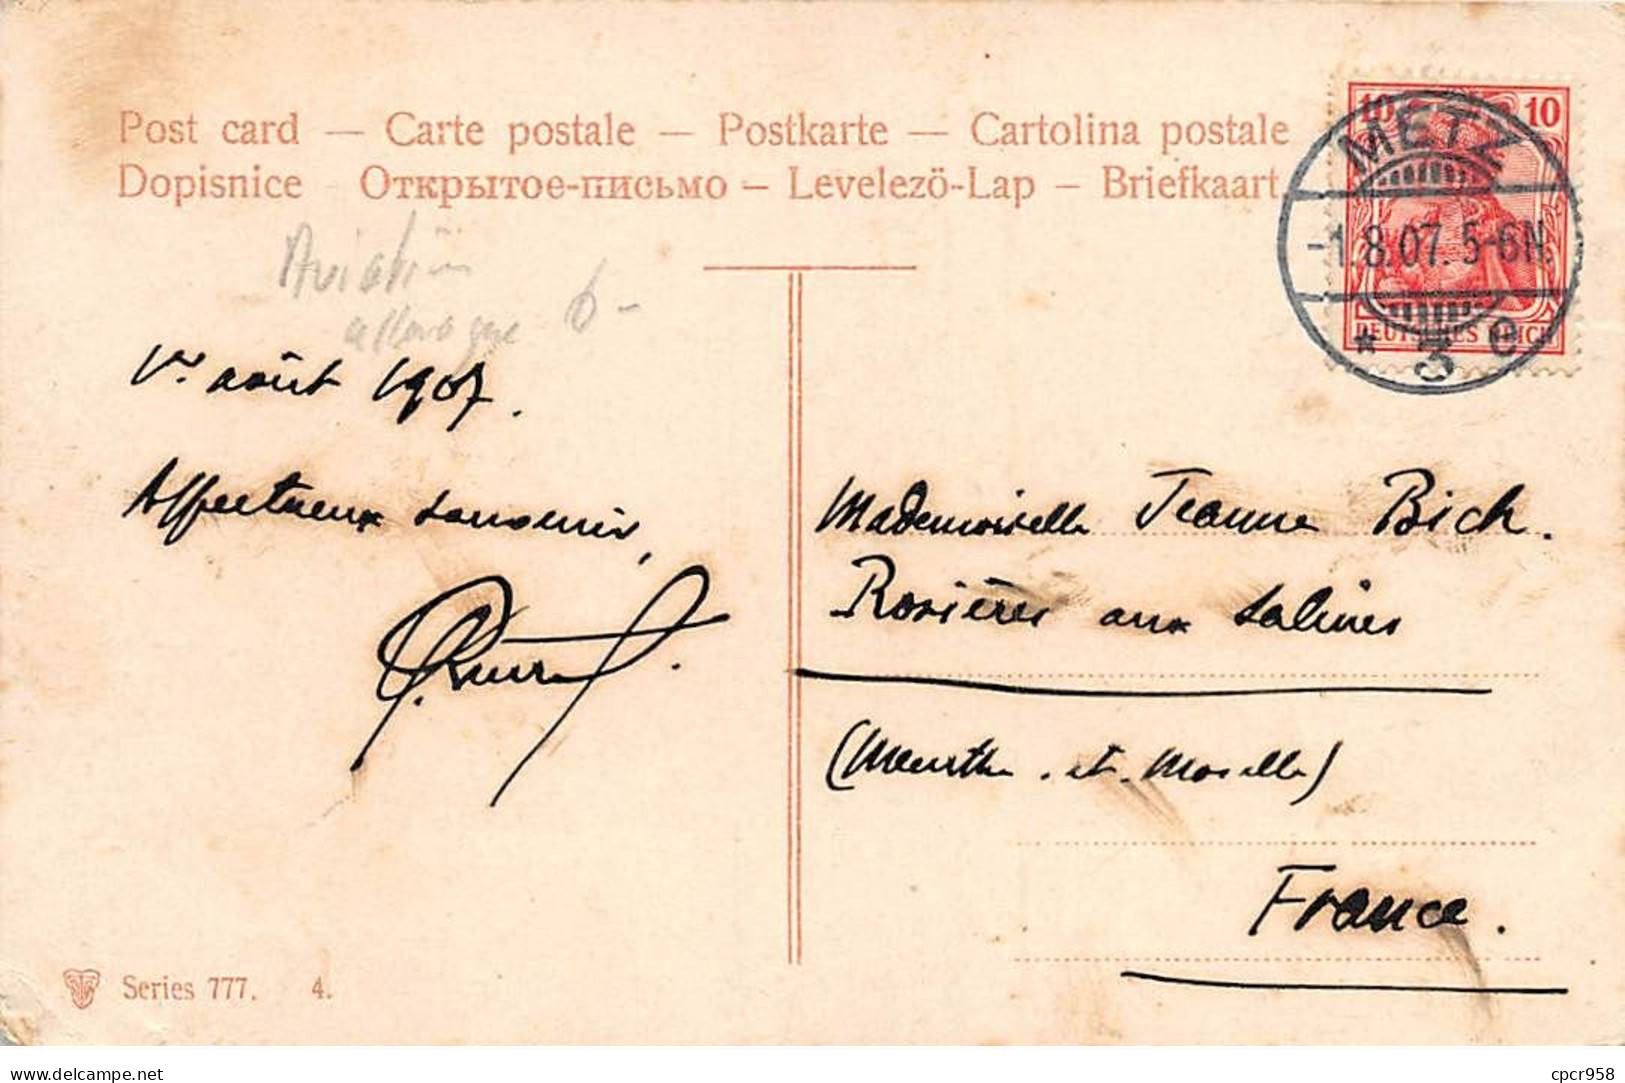 Post card — Carte postale — Postkarte — Cartolina postale
Dopisnice Открытое-письмо — Levelezö-Lap — Briefkaart
10 10
METZ
-1.8.07. 5-6N.
DEUTSCHES REICH
* 3 e
Aviation
6-
1er août 1907.
Affectueux souvenir,
Mademoiselle Jeanne Bich.
Rosières aux Salines
(Meurthe. et. Moselle)
France.
Series 777. 4.
www.delcampe.net
cpcr958